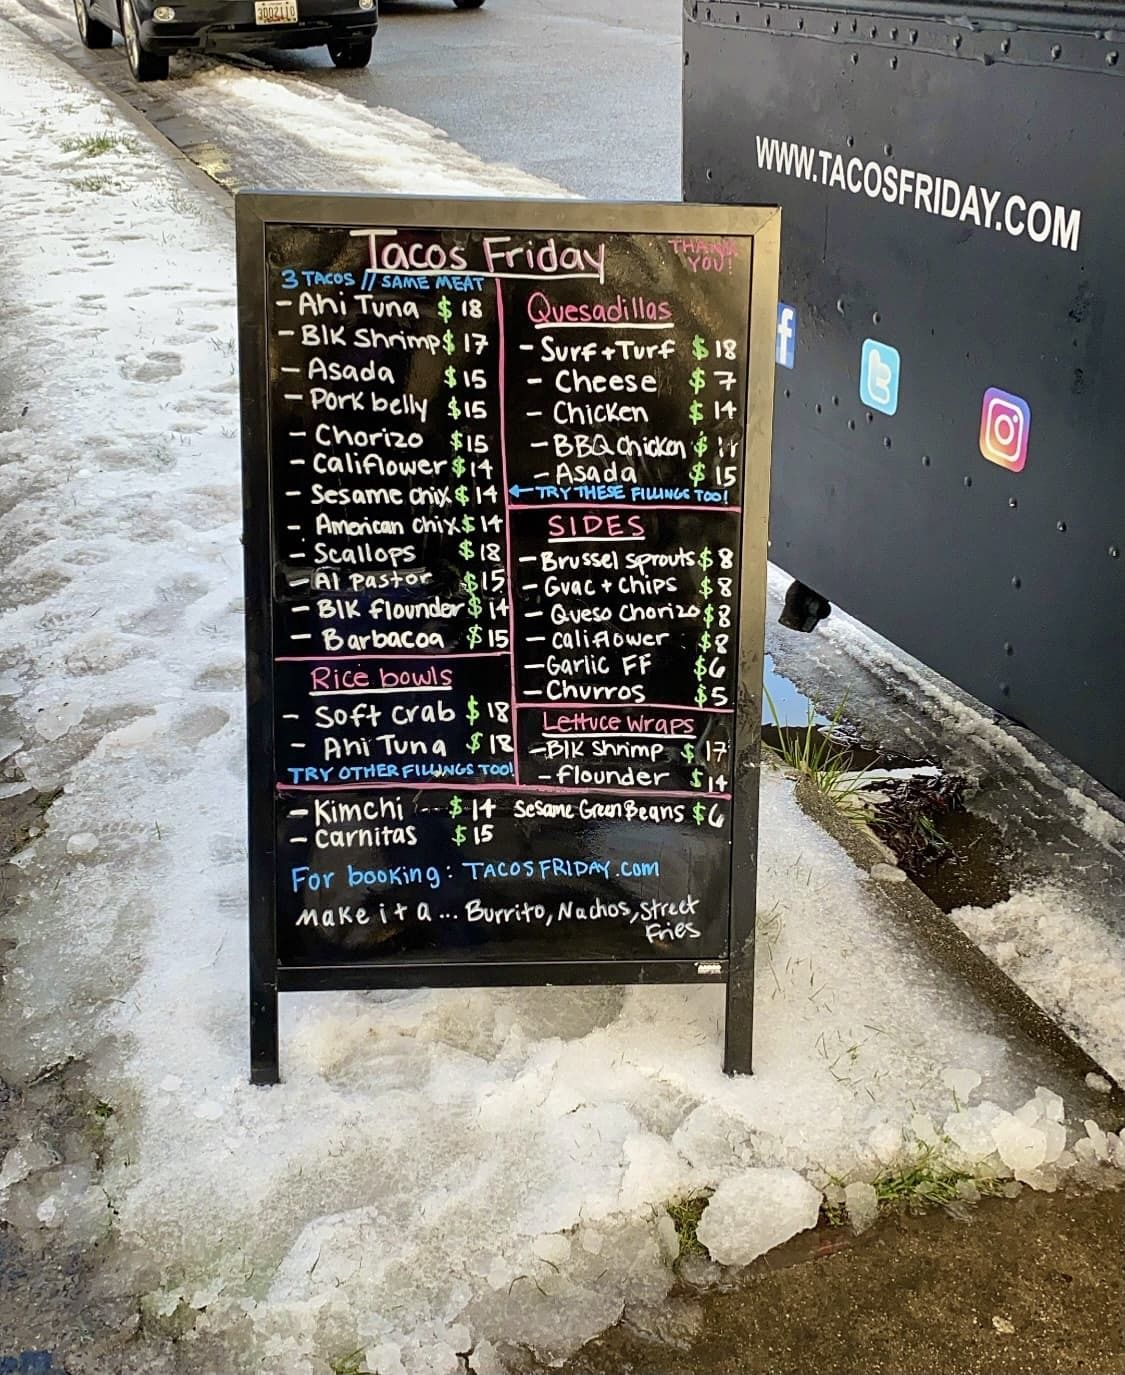 3DD2110
WWW.TACOSFRIDAY.COM
Tacos Friday
THANK
YOU!
3 TACOS // SAME MEAT
- Ahi Tuna $18
- Blk Shrimp $17
- Asada $15
- Pork belly $15
- Chorizo $15
- Califlower $14
- Sesame chix $14
- American chix $14
- Scallops $18
- Al Pastor $15
- Blk flounder $14
- Barbacoa $15
Rice bowls
- Soft crab $18
- Ahi Tuna $18
TRY OTHER FILLINGS TOO!
Quesadillas
- Surf + Turf $18
- Cheese $7
- Chicken $14
- BBQ Chicken $
- Asada $15
← TRY THESE FILLINGS TOO!
SIDES
- Brussel sprouts $8
- Guac + Chips $8
- Queso Chorizo $8
- califlower $8
- Garlic FF $6
- Churros $5
Lettuce Wraps
- Blk Shrimp $17
- flounder $14
- Kimchi -- $14
- Carnitas $15
Sesame Green Beans $6
For booking: TACOSFRIDAY.com
Make it a... Burrito, Nachos, Street
Fries